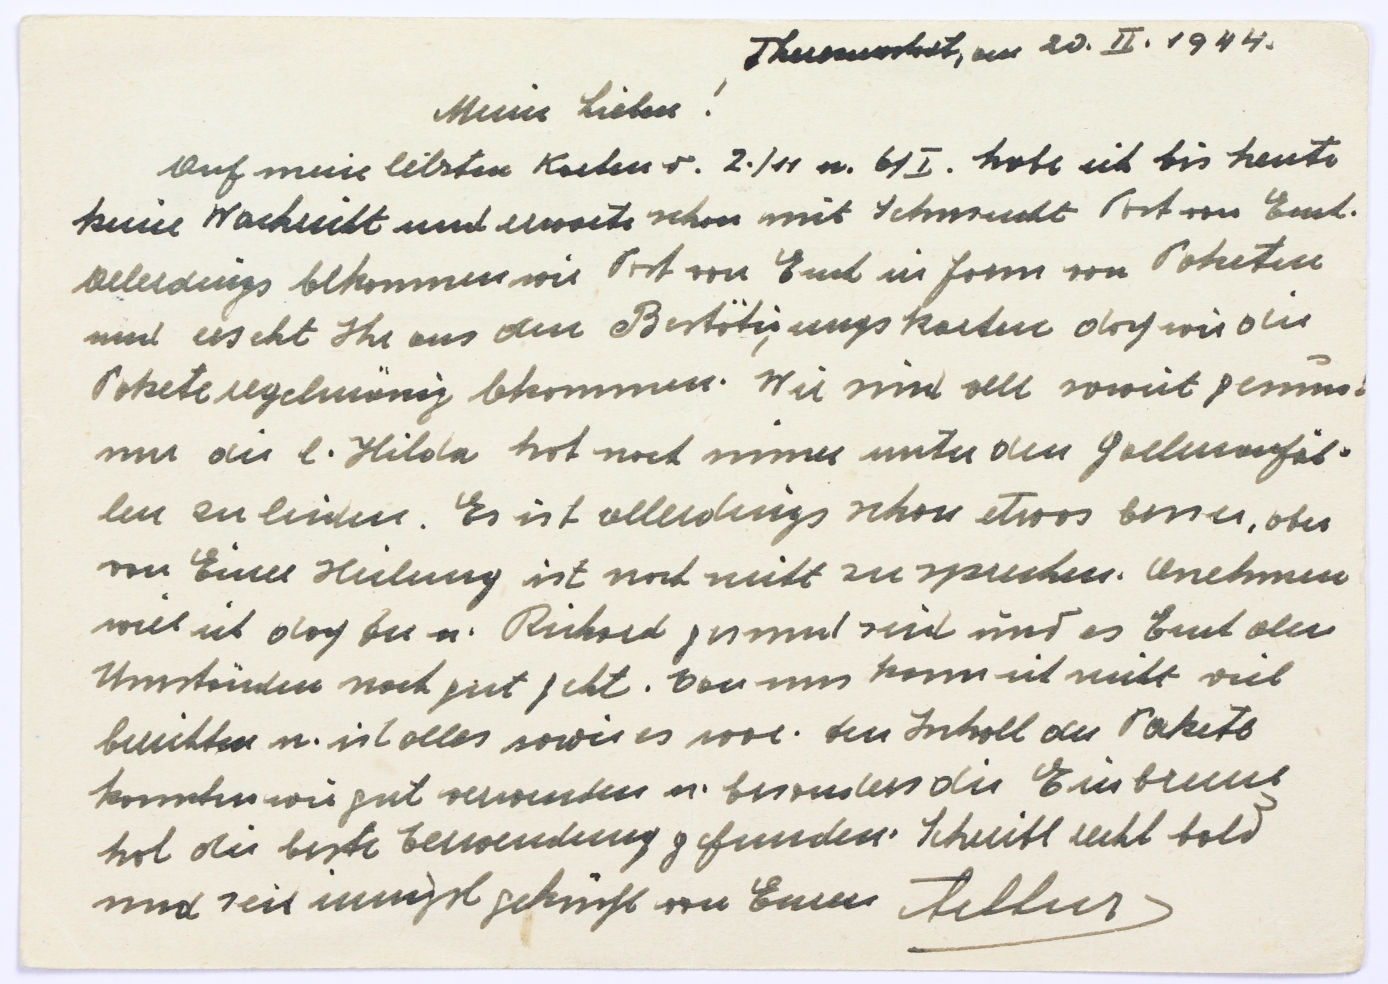 Theresienstadt, am 20. II. 1944.
Meine Lieben!
Auf meine letzten Karten v. 2./11 u. 6/I. habe ich bis heute
keine Nachricht und erwarte schon mit Sehnsucht Post von Euch.
Allerdings bekommen wir Post von Euch in form von Paketen
und erseht Ihr aus den Bestätigungskarten daß wir die
Pakete regelmäßig bekommen. Wir sind alle soweit gesund
nur die l. Hilda hat noch immer unter den Gallenanfäl-
len zu leiden. Es ist allerdings schon etwas besser, aber
von Einer Heilung ist noch nicht zu sprechen. Anehmen
will ich daß u. Richard gesund seid und es Euch den
Umständen nach gut geht. Von uns kann ich nicht viel
berichten u. ist alles sowie es war. den Inhalt der Pakete
konnten wir gut verwenden u. besonders die Einbrenne
hat die beste Verwendung gefunden. Schreibt recht bald
und seid innigst geküßt von Euren